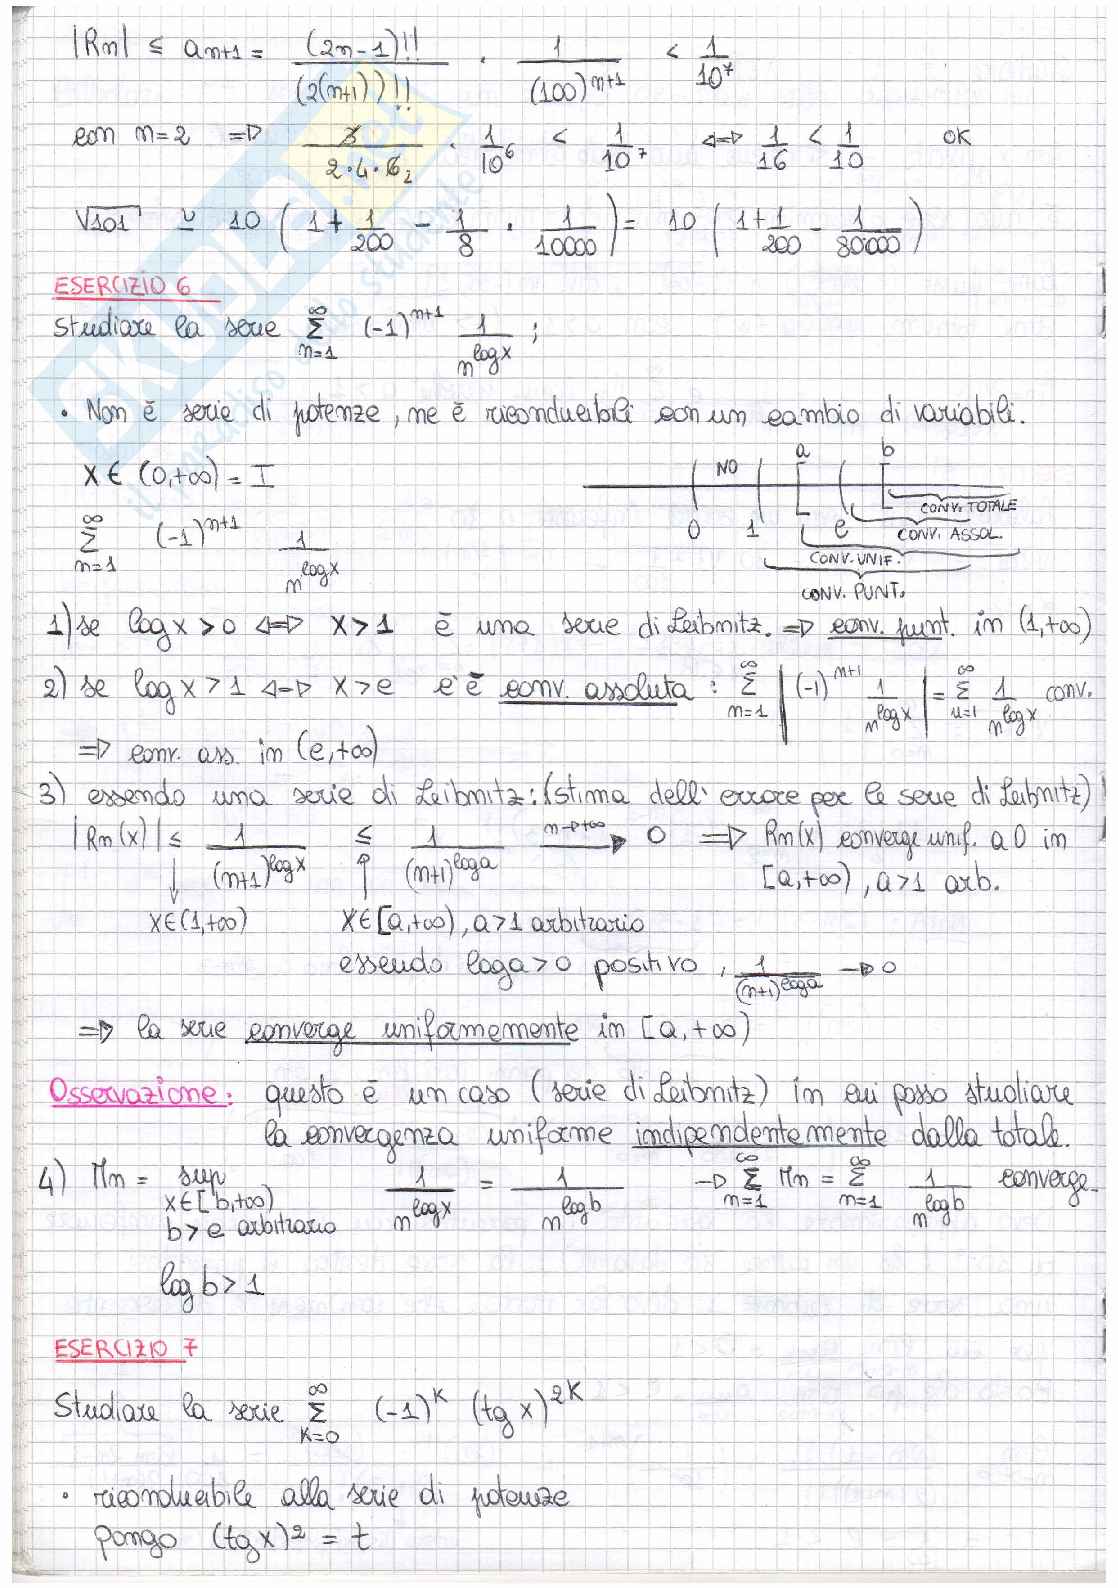 |Rn| ≤ an+1 = (2n-1)!! / (2(n+1))!! · 1/(100)^(n+1) < 1/10^7
con n=2 => 3/(2·4·6₂) · 1/10^6 < 1/10^7 <=> 1/16 < 1/10 OK
√101 ≃ 10 (1 + 1/200 - 1/8 · 1/10000) = 10 (1 + 1/200 - 1/80000)
ESERCIZIO 6
Studiare la serie ∑_{n=1}^{∞} (-1)^{n+1} 1/n^{log x} ;
• Non è serie di potenze, ne è riconducibili con un cambio di variabili.
x ∈ (0,+∞) = I
NO a b
0 1 e
CONV. TOTALE
CONV. ASSOL.
CONV. UNIF.
CONV. PUNT.
∑_{n=1}^{∞} (-1)^{n+1} 1/n^{log x}
1) se log x > 0 <=> x > 1 è una serie di Leibnitz. => conv. punt. in (1,+∞)
2) se log x > 1 <=> x > e c'è conv. assoluta : ∑_{n=1}^{∞} |(-1)^{n+1} 1/n^{log x}| = ∑_{n=1}^{∞} 1/n^{log x} conv.
=> conv. ass. in (e,+∞)
3) essendo una serie di Leibnitz: (stima dell' errore per le serie di Leibnitz)
|Rn(x)| ≤ 1/(n+1)^{log x} ≤ 1/(n+1)^{log a} → (n→+∞) 0 => Rn(x) converge unif. a 0 in
[a,+∞), a>1 arb.
↓ x∈(1,+∞) ↑ x∈[a,+∞), a>1 arbitrario
essendo log a > 0 positivo, 1/(n+1)^{log a} → 0
=> la serie converge uniformemente in [a,+∞)
Osservazione: questo è un caso (serie di Leibnitz) in cui posso studiare
la convergenza uniforme indipendentemente dalla totale.
4) Mn = sup 1/n^{log x} = 1/n^{log b} → ∑_{n=1}^{∞} Mn = ∑_{n=1}^{∞} 1/n^{log b} converge
x∈[b,+∞)
b > e arbitrario
log b > 1
ESERCIZIO 7
Studiare la serie ∑_{K=0}^{∞} (-1)^K (tg x)^{2K}
• riconducibile alla serie di potenze
pongo (tg x)² = t
SKUOLA.net
il paradiso dello studente